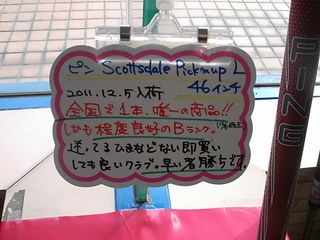 ピン Scottsdale Pickmup L
46インチ
2011.12.5入荷
全国で1本、唯一の商品!!
しかも程度良好のBランク。
迷ってるひまなどない即買い
しても良いクラブ。早い者勝ちです。
PING